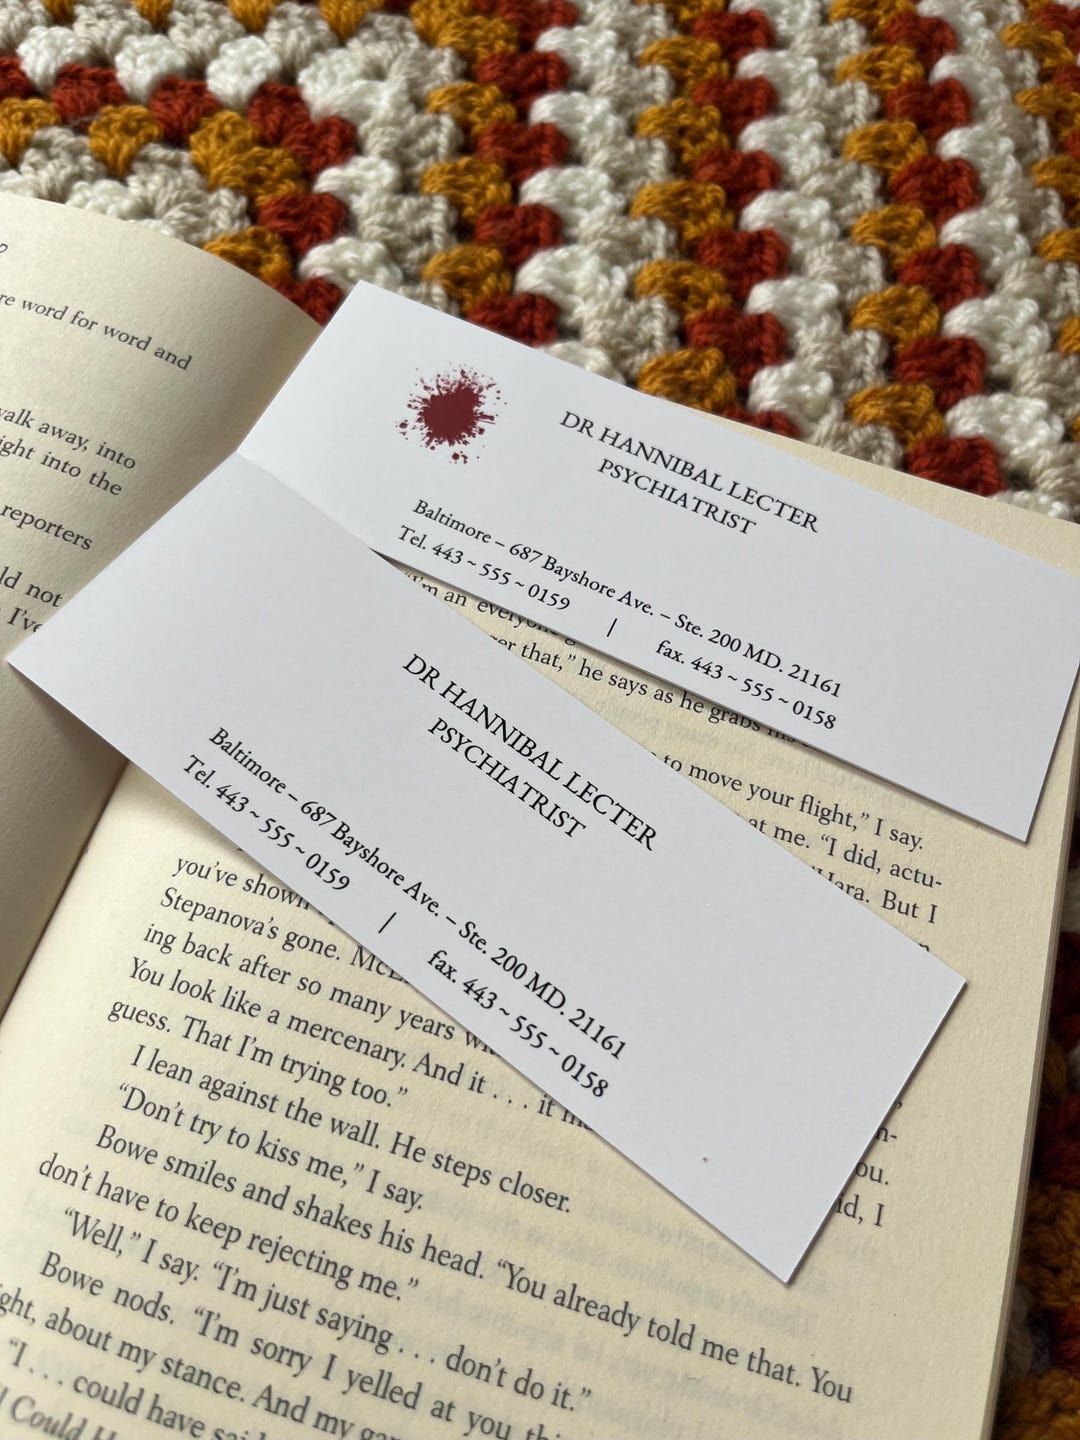 re word for word and
walk away, into
ight into the
reporters
ld not
I've
DR HANNIBAL LECTER
PSYCHIATRIST
Baltimore – 687 Bayshore Ave. – Ste. 200 MD. 21161
Tel. 443 ~ 555 ~ 0159 | fax. 443 ~ 555 ~ 0158
"I'm an everyone
er that," he says as he grabs his
to move your flight," I say.
at me. "I did, actu-
Hara. But I
DR HANNIBAL LECTER
PSYCHIATRIST
Baltimore – 687 Bayshore Ave. – Ste. 200 MD. 21161
Tel. 443 ~ 555 ~ 0159 | fax. 443 ~ 555 ~ 0158
you've shown
Stepanova's gone.
ing back after so many years
You look like a mercenary. And it . . . it
guess. That I'm trying too."
ou.
id, I
I lean against the wall. He steps closer.
"Don't try to kiss me," I say.
Bowe smiles and shakes his head. "You already told me that. You
don't have to keep rejecting me."
"Well," I say. "I'm just saying . . . don't do it."
Bowe nods. "I'm sorry I yelled at you
ght, about my stance. And my
"I . . . could have
Could